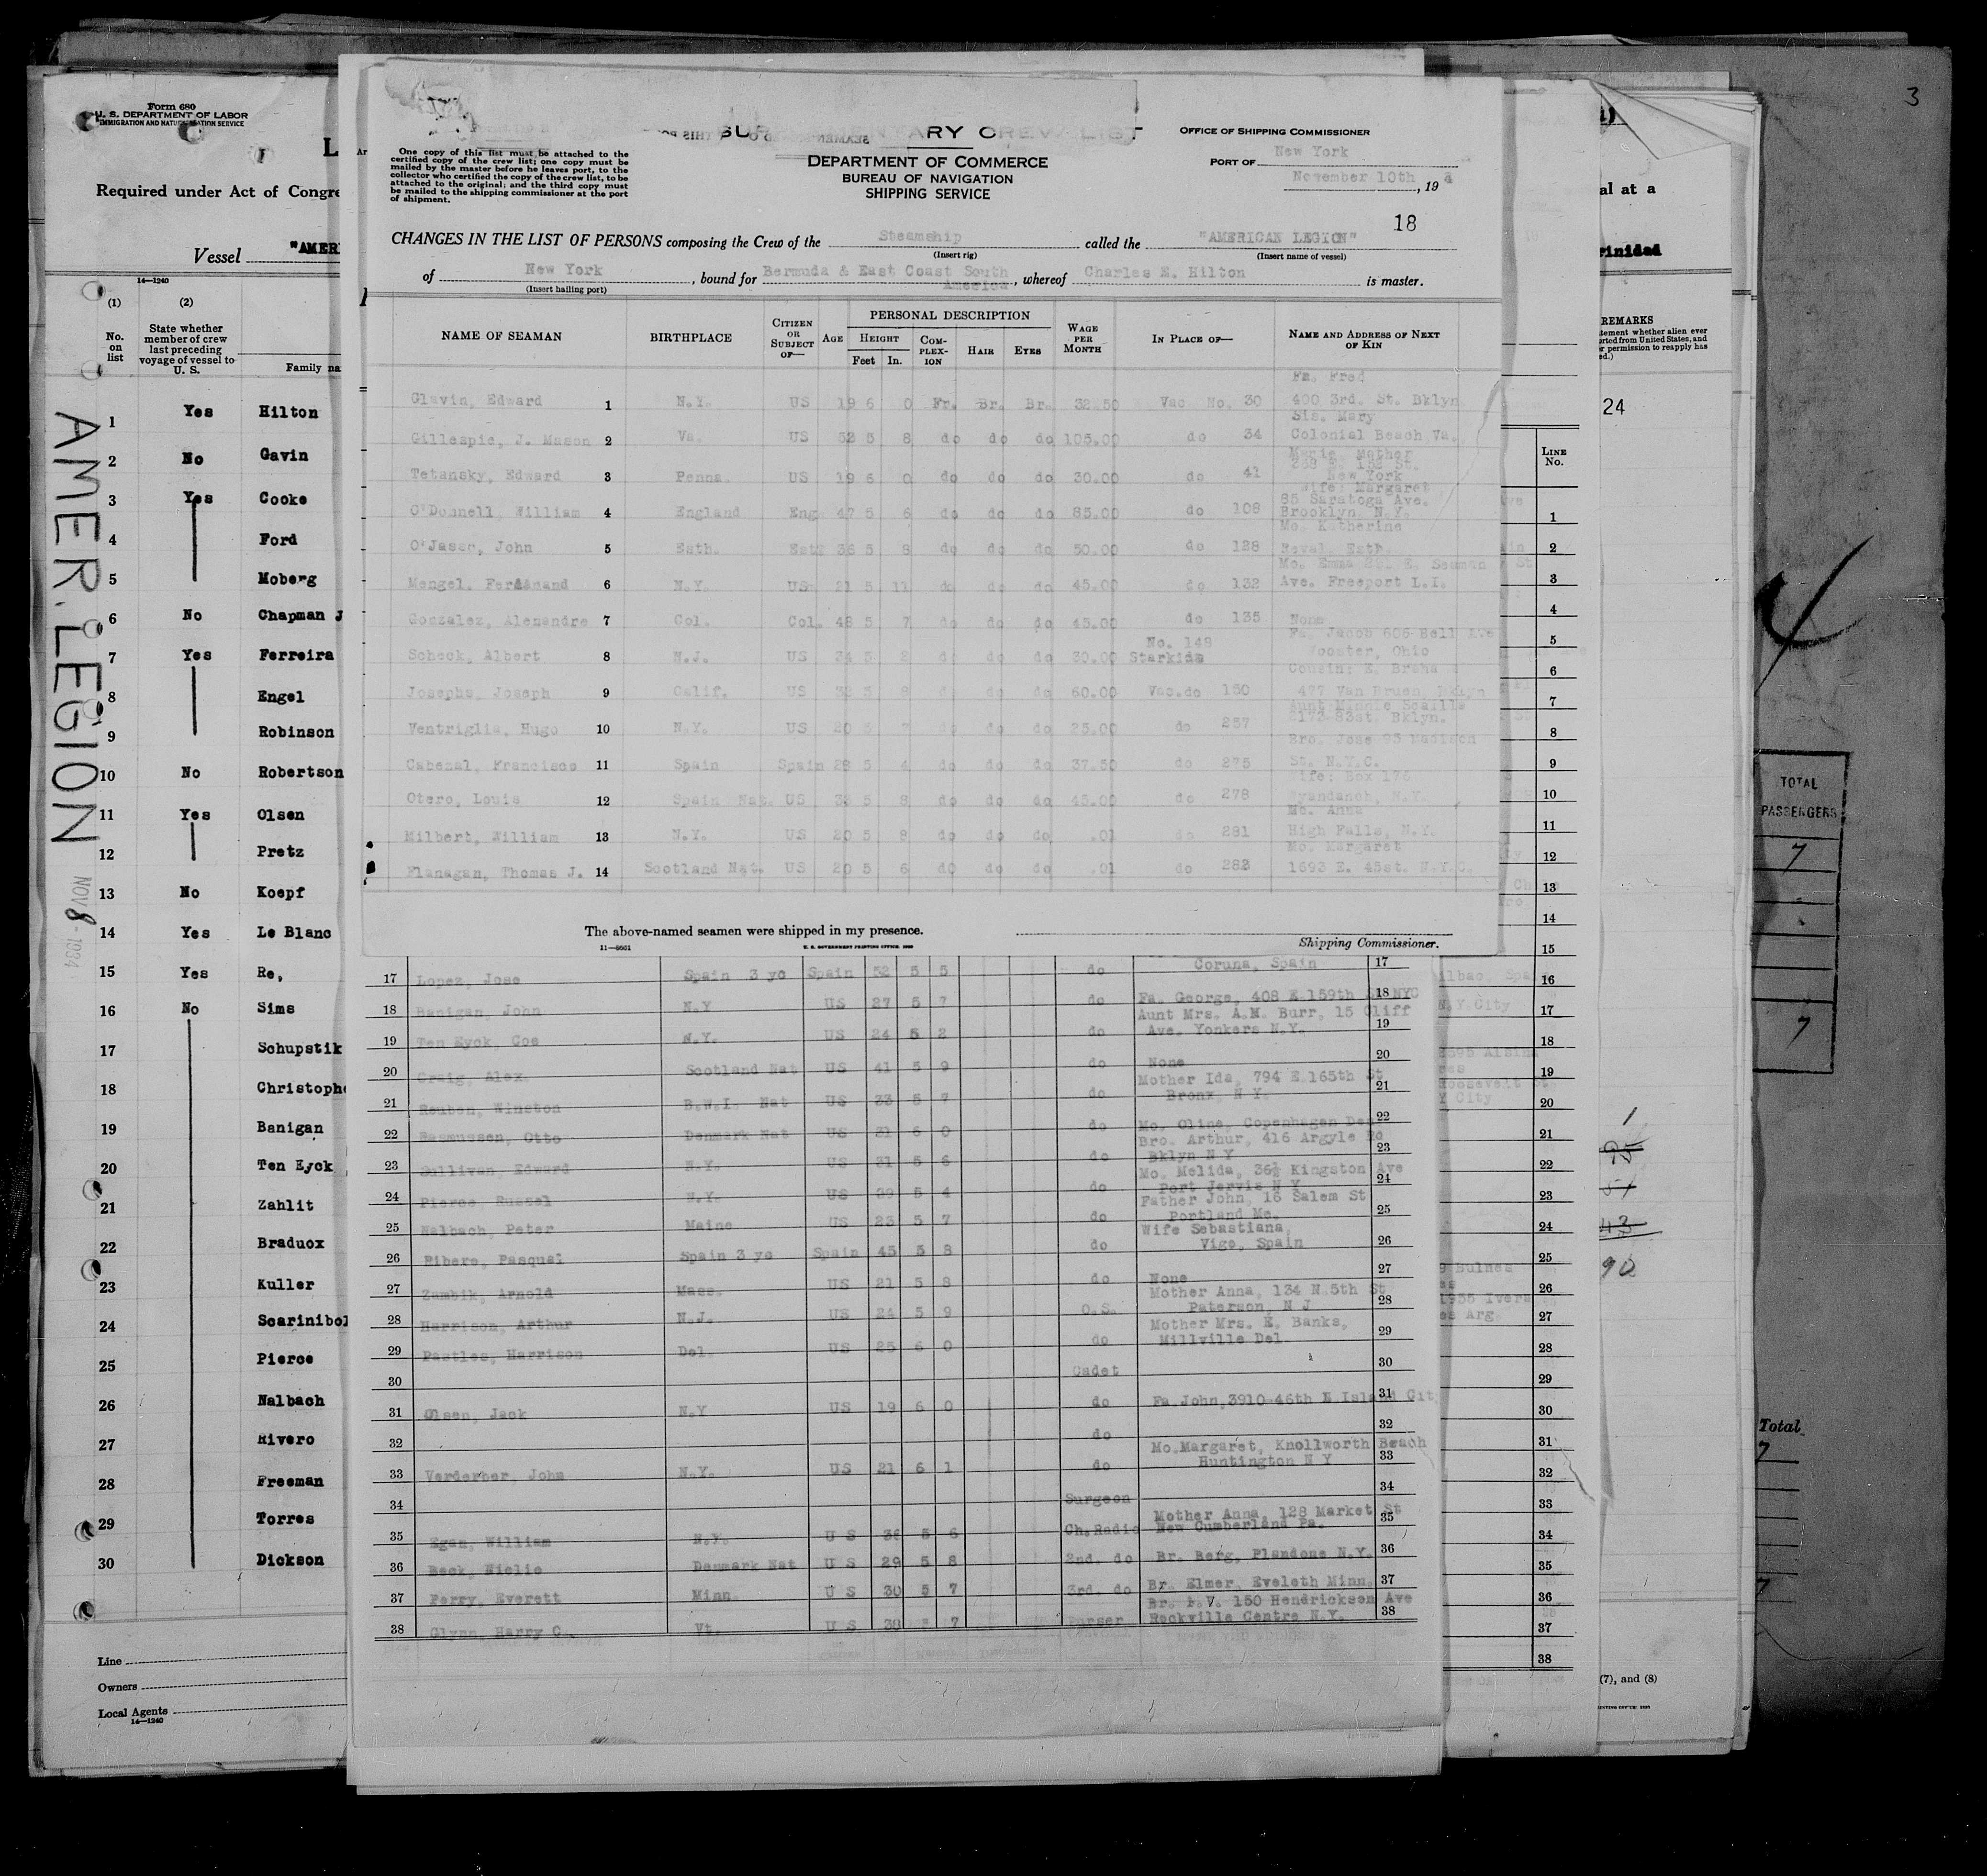 3
Form 680
U. S. DEPARTMENT OF LABOR
IMMIGRATION AND NATURALIZATION SERVICE
L
Required under Act of Congre
Vessel "AMER
14—1240
(1) (2)
No. on list
State whether member of crew last preceding voyage of vessel to U. S.
Family na
1 Yes Hilton
2 No Gavin
3 Yes Cooke
4 Ford
5 Moberg
6 No Chapman J
7 Yes Ferreira
8 Engel
9 Robinson
10 No Robertson
11 Yes Olsen
12 Pretz
13 No Koepf
14 Yes Le Blanc
15 Yes Re,
16 No Sims
17 Schupstik
18 Christophe
19 Banigan
20 Ten Eyck
21 Zahlit
22 Braduox
23 Kuller
24 Scarinibol
25 Pierce
26 Nalbach
27 Rivero
28 Freeman
29 Torres
30 Dickson
Line
Owners
Local Agents
14—1240
AMER. LEGION
NOV 8 - 1934
ARY CREW LIST
One copy of this list must be attached to the
certified copy of the crew list; one copy must be
mailed by the master before he leaves port, to the
collector who certified the copy of the crew list, to be
attached to the original; and the third copy must
be mailed to the shipping commissioner at the port
of shipment.
DEPARTMENT OF COMMERCE
BUREAU OF NAVIGATION
SHIPPING SERVICE
OFFICE OF SHIPPING COMMISSIONER
PORT OF New York
November 10th, 19
18
CHANGES IN THE LIST OF PERSONS composing the Crew of the Steamship called the "AMERICAN LEGION"
(Insert rig) (Insert name of vessel)
of New York, bound for Bermuda & East Coast South America, whereof Charles E. Hilton is master.
(Insert hailing port)
NAME OF SEAMAN BIRTHPLACE CITIZEN OR SUBJECT OF— AGE PERSONAL DESCRIPTION HEIGHT Feet In. COMPLEXION HAIR EYES WAGE PER MONTH IN PLACE OF— NAME AND ADDRESS OF NEXT OF KIN
Glavin, Edward 1 N.Y. US 19 6 0 Fr. Br. Br. 32.50 Vac. No. 30 Fa. Fred 400 3rd. St. Bklyn.
Gillespie, J. Mason 2 Va. US 52 5 8 do do do 105.00 do 34 Sis. Mary Colonial Beach Va.
Tetansky, Edward 3 Penna. US 19 6 0 do do do 30.00 do 41 Marie, Mother New York
O'Donnell, William 4 England Eng. 47 5 6 do do do 85.00 do 108 Wife: Margaret 85 Saratoga Ave. Brooklyn, N.Y.
O'Jasse, John 5 Esth. 36 5 8 do do do 50.00 do 128 Mo. Katherine Reval, Esth.
Mengel, Ferdinand 6 N.Y. US 21 5 11 do do do 45.00 do 132 Mo. Emma 291 E. Seaman Ave. Freeport L.I.
Gonzalez, Alexandre 7 Col. Col. 48 5 7 do do do 45.00 do 135 None
Scheck, Albert 8 N.J. US 34 5 2 do do do 30.00 No. 148 Starkida Fa. Jacob 606 Bell Ave Wooster, Ohio
Josephs, Joseph 9 Calif. US 5 8 do do do 60.00 Vac. do 150 Cousin: E. Breha 477 Van Bruen, Bklyn
Ventriglia, Hugo 10 N.Y. US 20 5 7 do do do 25.00 do 257 Aunt Minnie Scaille 8172-83st. Bklyn.
Cabenal, Francisco 11 Spain Spain 28 5 4 do do do 37.50 do 275 Bro. Jose 93 Madison St. N.Y.C.
Otero, Louis 12 Spain Nat. US 5 8 do do do 45.00 do 278 Wife: Box 176 Wyandanch, N.Y.
Milbert, William 13 N.Y. US 20 5 8 do do do .01 do 281 Mo. Anna High Falls, N.Y.
Flanagan, Thomas J. 14 Scotland Nat. US 20 5 6 do do do .01 do 282 Mo. Margaret 1693 E. 45st. N.Y.C.
The above-named seamen were shipped in my presence.
11—8661 U. S. GOVERNMENT PRINTING OFFICE
Shipping Commissioner.
17 Lopez, Jose Spain 3 yc Spain 52 5 5 do Coruna, Spain 17
18 Banigan, John N.Y US 27 5 7 do Fa. George, 408 E 159th St NYC 18
19 Ten Eyck, Coe N.Y. US 24 5 2 do Aunt Mrs. A.M. Burr, 15 Cliff Ave. Yonkers N.Y. 19
20 Craig, Alex. Scotland Nat US 41 5 9 do None 20
21 Reuben, Winston B.W.I. Nat US 33 5 7 do Mother Ida, 794 E 165th St Bronx, N Y. 21
22 Rasmussen, Otto Denmark Nat US 31 6 0 do Mo. Oline, Copenhagen Den 22
23 Sullivan, Edward N.Y. US 31 5 6 do Bro. Arthur, 416 Argyle Rd Bklyn N Y 23
24 Pierce Russel N.Y. US 39 5 4 do Mo. Melida, 36½ Kingston Ave Port Jervis N Y 24
25 Nalbach, Peter Maine US 23 5 7 do Father John, 16 Salem St Portland Me. 25
26 Ribero, Pasquel Spain 3 yc Spain 45 5 8 do Wife Sebastiana, Vigo, Spain 26
27 Zambik, Arnold Mass. US 21 5 8 do None 27
28 Harrison, Arthur N.J. US 24 5 9 O.S. Mother Anna, 134 N 5th St Paterson, N J 28
29 Pastles, Harrison Del. US 25 6 0 do Mother Mrs. E. Banks, Millville Del. 29
30 Cadet 30
31 Olsen, Jack N.Y US 19 6 0 do Fa John, 3910 46th L Island Cit 31
32 do 32
33 Verderber, John N.Y. US 21 6 1 do Mo. Margaret, Knollworth Beach Huntington N Y 33
34 Surgeon 34
35 Egan, William N.Y. U S 36 5 6 Ch. Radio Mother Anna, 128 Market St New Cumberland Pa. 35
36 Beck, Nielie Denmark Nat U S 29 5 8 2nd. do Br. Berg, Plandone N.Y. 36
37 Perry, Everett Minn. U S 30 5 7 3rd. do Br. Elmer, Eveleth Minn 37
38 Glynn, Harry C. Vt. U S 39 7 Purser Br. F.V. 150 Hendrickson Ave Rockville Centre N.Y. 38
al at a
rinidad
REMARKS
tement whether alien ever
rted from United States, and
r permission to reapply has
ed.)
24
LINE No.
1
2
3
4
5
6
7
8
9
10
11
12
13
14
15
16 ilbao, Spa
17 N.Y.City
18
19
20 Y City
21
22
23
24
25
26
27
28
29
30
31
32
33
34
35
36
37
38
4
1
51
43
90
(7), and (8)
TOTAL
PASSENGERS
7
7
Total
7